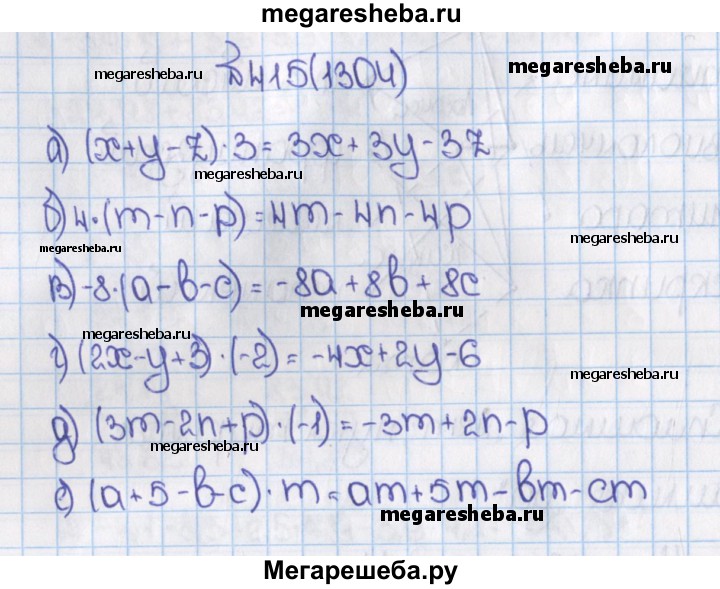 megaresheba.ru
№ 415(1304)
megaresheba.ru
megaresheba.ru
а) (x+y-z)·3 = 3x + 3y - 3z
megaresheba.ru
б) 4·(m-n-p) = 4m - 4n - 4p
megaresheba.ru
megaresheba.ru
в) -8·(a-b-c) = -8a + 8b + 8c
megaresheba.ru
megaresheba.ru
г) (2x-y+3)·(-2) = -4x+2y-6
megaresheba.ru
д) (3m-2n+p)·(-1) = -3m+2n-p
megaresheba.ru
megaresheba.ru
е) (a+5-b-c)·m = am+5m-bm-cm
megaresheba.ru
megaresheba.ru
Мегарешеба.ру